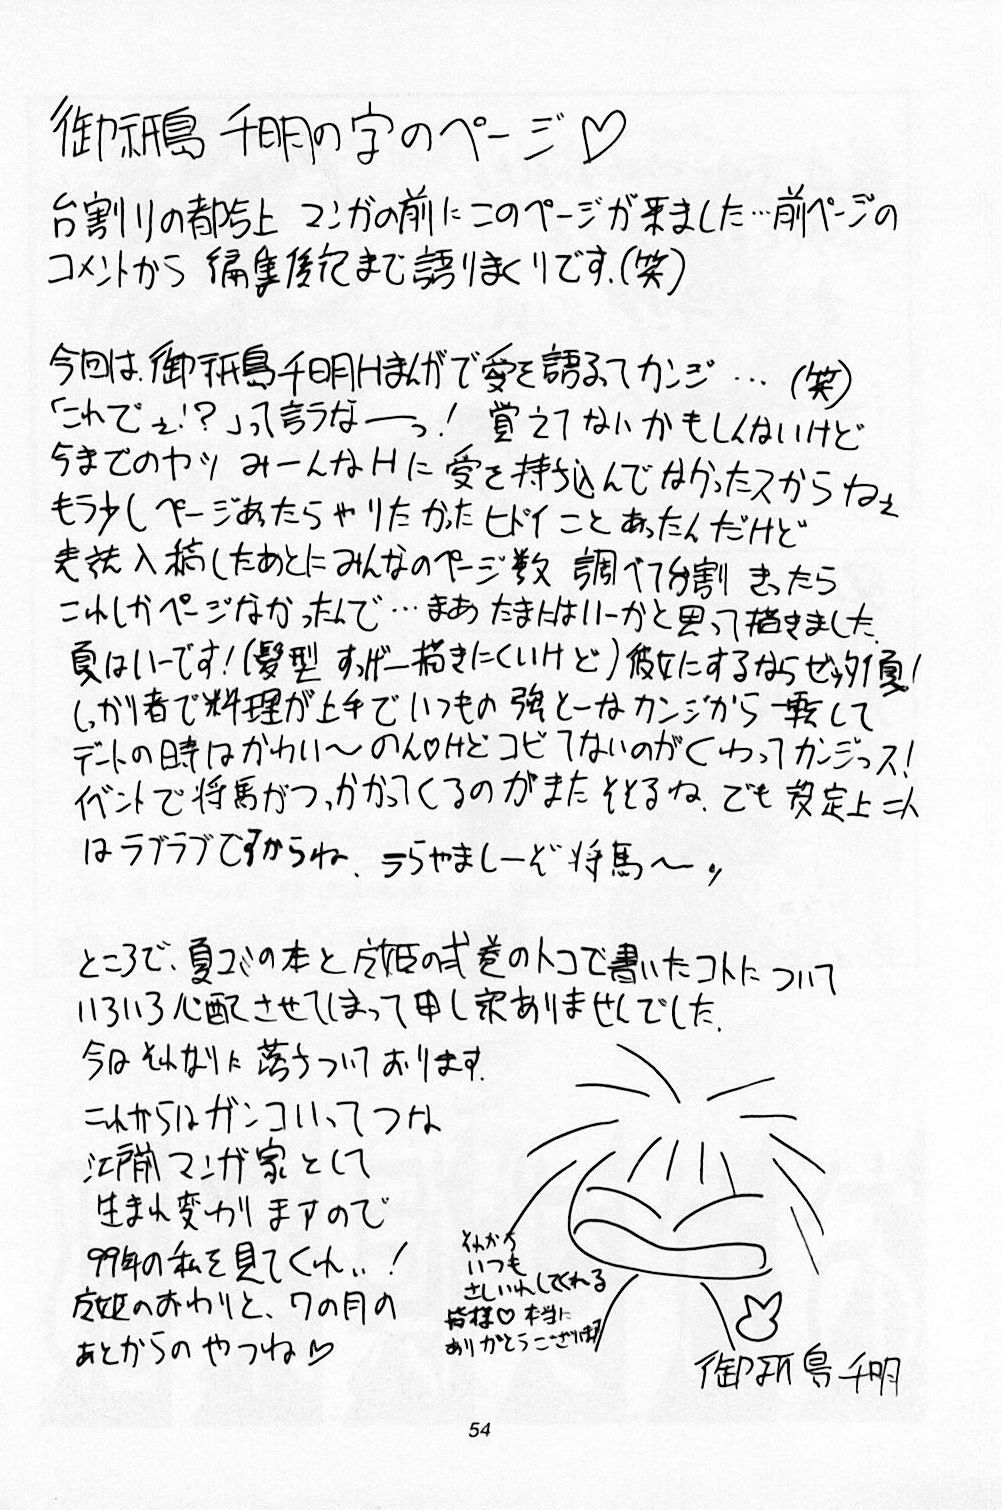 御祇島 千明の字のページ♡
台割りの都合上 マンガの前にこのページが来ました…前ページの
コメントから 編集後記まで語りまくりです.(笑)
今回は、御祇島千明Hまんがで愛を語るってカンジ… (笑)
「これでぇ!?」って言うなーっ! 覚えてないかもしんないけど
今までのヤツ みーんなHに愛を持ち込んでなかったスからねぇ
もう少しページあったらやりたかったヒドイことあったんだけど
表紙入稿したあとにみんなのページ数 調べて台割 きったら
これしかページなかったんで…まあたまにはいーかと思って描きました.
夏はいーです!(髪型 すっげー描きにくいけど)彼女にするならゼッタイ夏!
しっかり者で料理が上手でいつもの強どーなカンジから一転して
デートの時はかわい〜のん♡けどコビてないのがくわってカンジっス!
イベントで将馬がつっかかってくるのがまたそそるね.でも設定上二人
はラブラブですからね、うらやましーぞ将馬〜
ところで、夏コミの本と 姫の式巻のトコで書いたコトについて
いろいろ心配させてしまって申し訳ありませんでした.
今はそれなりに落ちついております.
これからはガンコいってつな
江戸前マンガ家として
生まれ変わりますので
99年の私を見てくれぃ!
姫のおわりと、ワの月の
あとからのやつね♡
それから
いつも
さしいれしてくれる
皆様♡本当に
ありがとうございます
御祇島千明
54